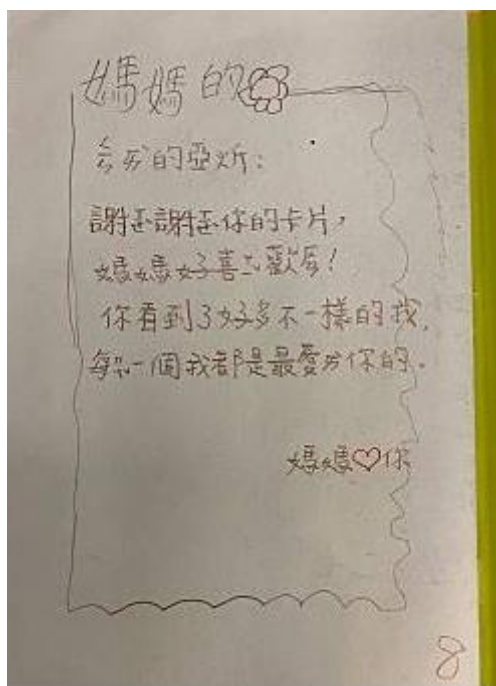 媽媽的
ㄙㄞ的亞炘：
謝ㄒㄧㄝ謝ㄒㄧㄝ你的卡片，
媽媽好喜ㄒㄧ歡ㄏㄨㄢ！
你看到了好多不一樣的我，
每ㄇㄟ一個我都是最愛ㄞ你的。
媽媽♡你
8